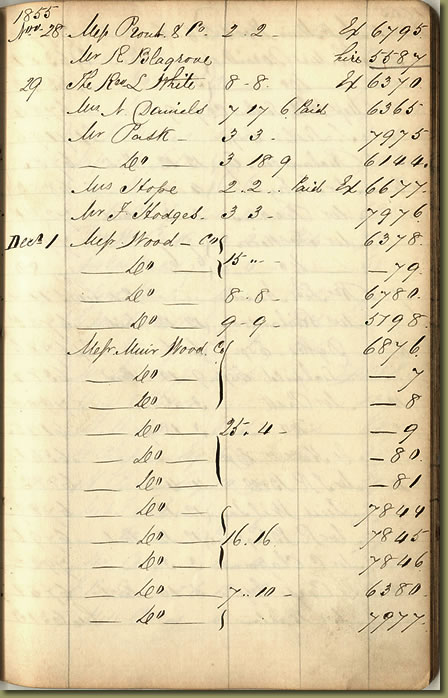 1855
Novr 28 Messrs Prout & Co. 2 . 2 . Ex 6795
Mr R Blagrove hire 5587
29 The Rev L White 8 - 8 . Ex 6370
Mrs N. Daniels 7 17 6 Paid 6365
Mr Pask - 3 3 - 7975
— Do — 3 18 9 6144
Mrs Hope 2 . 2 . Paid Ex 6677
Mr F Hodges - 3 3 - 7976
Decr 1 Messrs Wood — Co 6378
— Do — 15 " - — 79
— Do — 8 - 8 - 6780
— Do — 9 - 9 - 5798
Messrs Muir Wood Co 6876
— Do — — 7
— Do — — 8
— Do — 25 . 4 - — 9
— Do — — 80
— Do — — 81
— Do — 7844
— Do — 16 . 16 . 7845
— Do — 7846
— Do — 7 . 10 - 6380
— Do — 7977